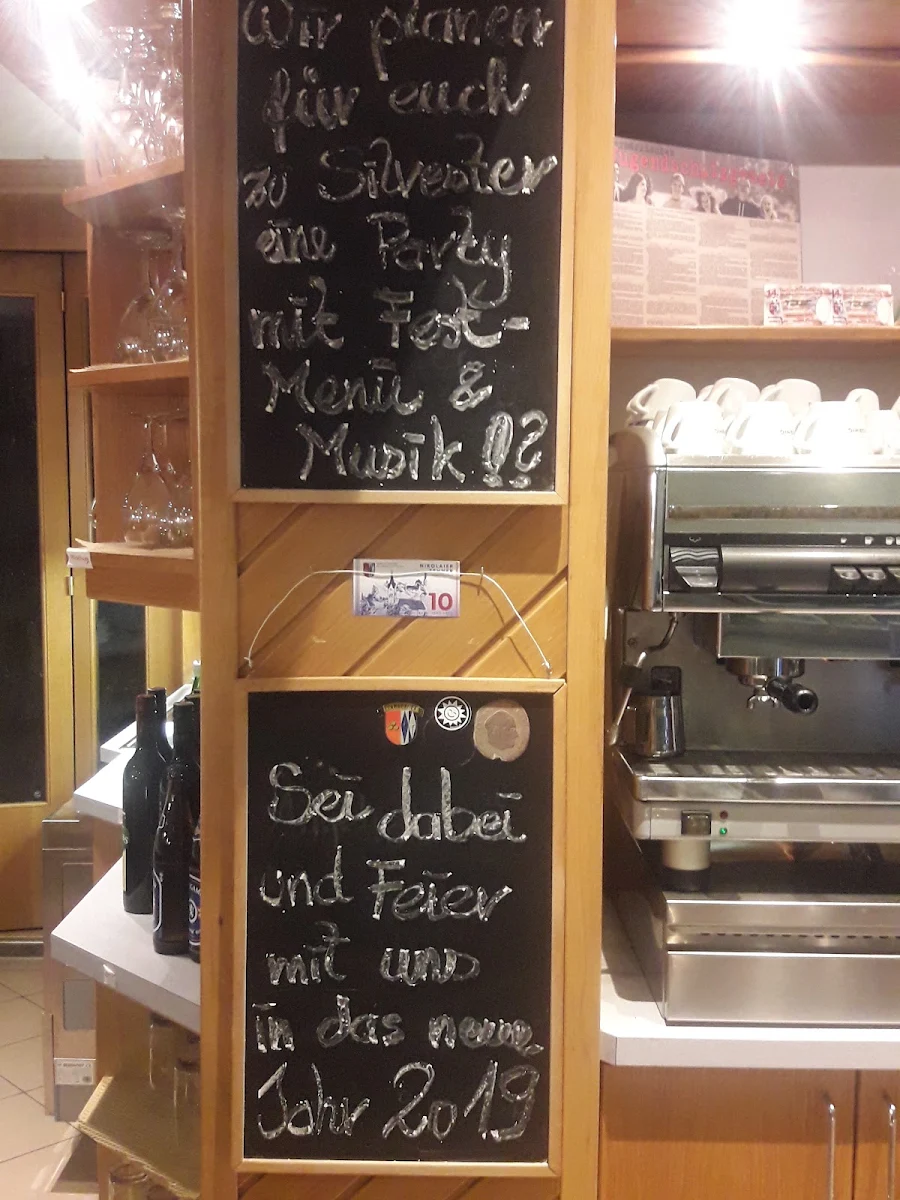 Wir planen
für euch
zu Silvester
eine Party
mit Fest-
Menü &
Musik!?
NIKOLAIER
10
Sei dabei
und Feier
mit uns
in das neue
Jahr 2019